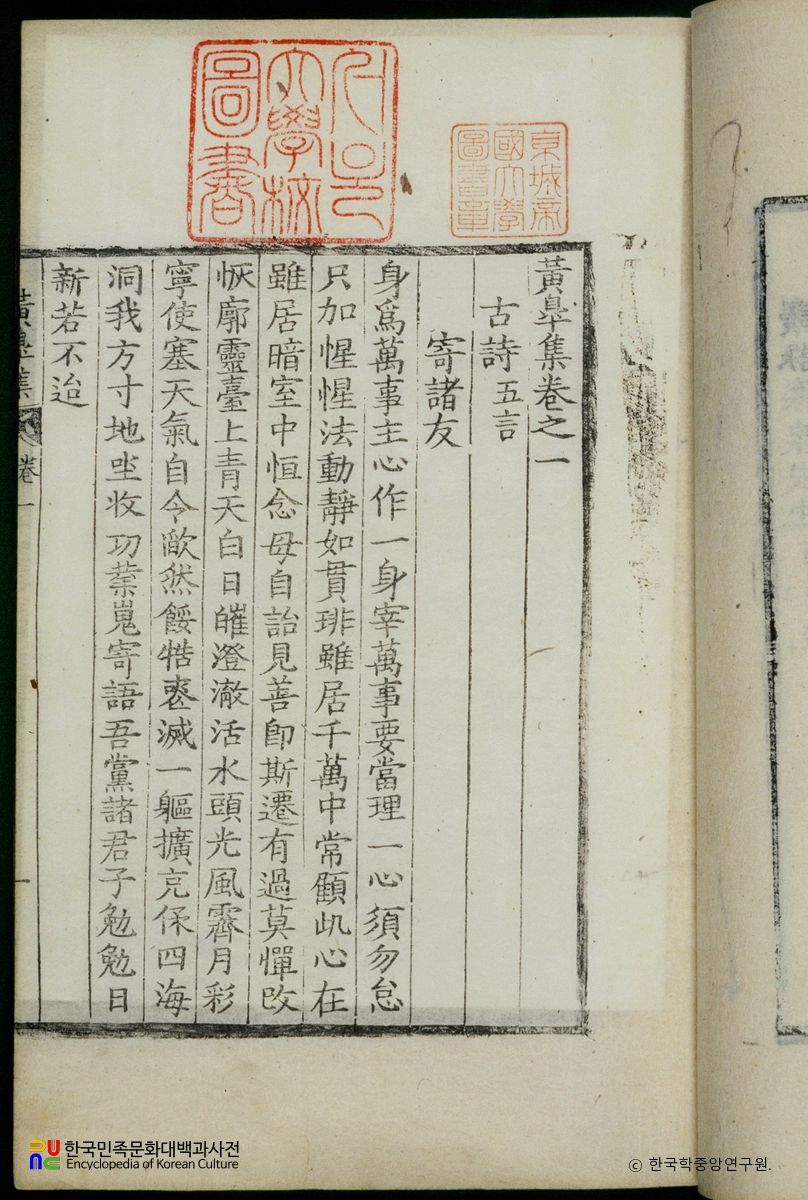 京城帝
國大學
圖書章
서울
大學校
圖書
黃皐集卷之一
古詩 五言
寄諸友
身爲萬事主心作一身宰萬事要當理一心須勿怠
只加惺惺法動靜如貫琲雖居千萬中常顧此心在
雖居暗室中恒念毋自詒見善卽斯遷有過莫憚改
恢廓靈臺上青天白日皠澄澈活水頭光風霽月彩
寧使塞天氣自令欿然餒牿喪滅一軀擴充保四海
洞我方寸地坐收功業嵬寄語吾黨諸君子勉勉日
新若不迨
黃皐集 卷一
한국민족문화대백과사전
Encyclopedia of Korean Culture
ⓒ 한국학중앙연구원.